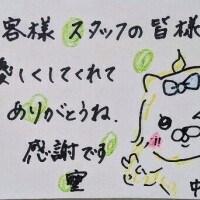 客様 スタッフの皆様
愛しくしてくれて
ありがとうね.
感謝です
中